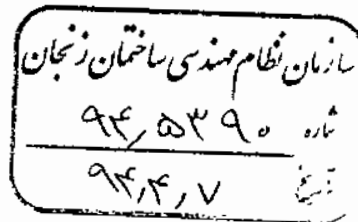 سازمان نظام مهندسی ساختمان زنجان
شماره ۹۴٫۵۳۹۰
تاریخ ۹۴٫۴٫۷